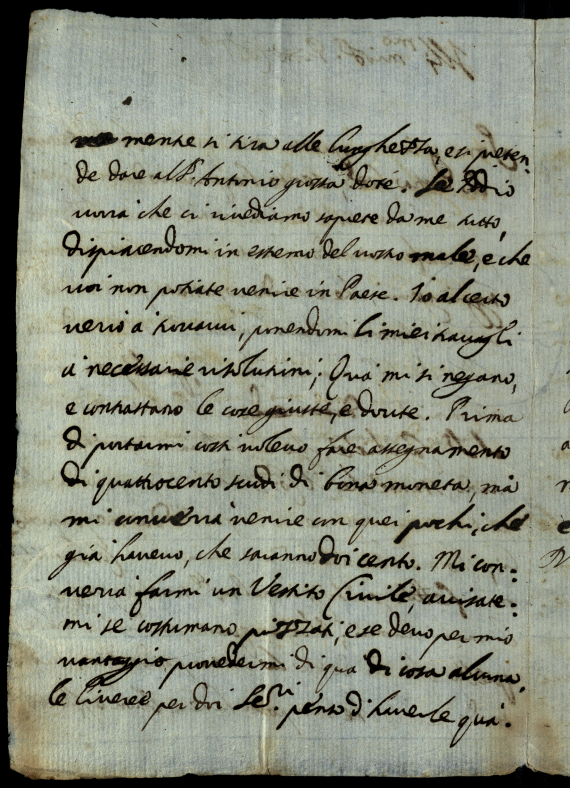 mente si tira alle lunghezza, e si preten:
de dare all Sr. Antinio giossa dote. Se Iddio
vorrà che ci rivediamo saprete da me tutto,
dispiacendomi in estremo del vostro male, e che
voi non potiate venire in Paese. Io al certo
verrò à trovarvi, ponendomi li miei travagli
à necessarie risolutini; Quà mi si negano,
e contrastano le cose giuste, e dovute. Prima
di portarmi costì volevo fare assegnamento
di quattrocento scudi di bona moneta, mà
mi converrà venire con quei pochi, che
già havevo, che saranno doi cento. Mi con:
verrà farmi un Vestito Civile, avisate:
mi se costumano pizzati, e se devo per mio
vantaggio provedermi di quà di cosa alcuna,
le livree per doi Seri. penso d'haverle quà.